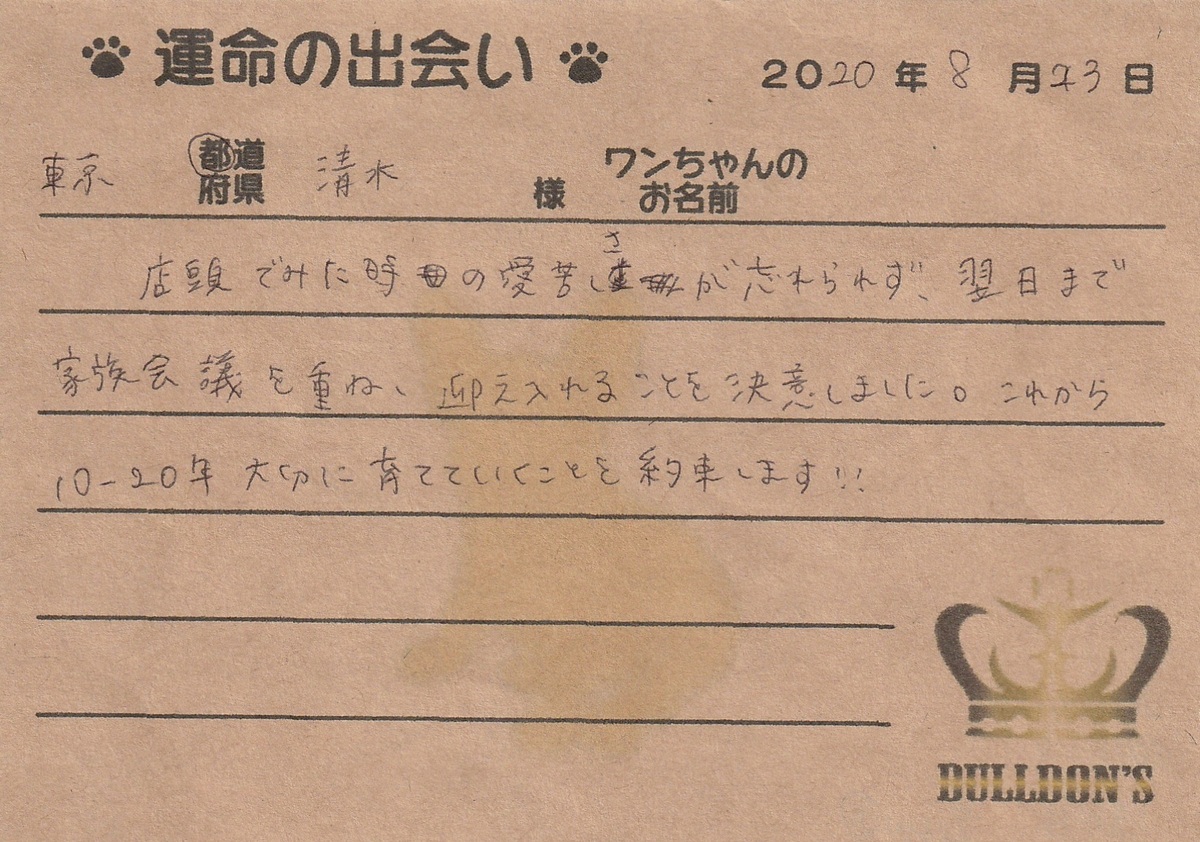 運命の出会い 2020年8月23日
東京 都道府県 清水 様 ワンちゃんのお名前
店頭でみた時の愛苦しさが忘れられず、翌日まで
家族会議を重ね、迎え入れることを決意しました。これから
10-20年大切に育てていくことを約束します!!
DULLDON'S